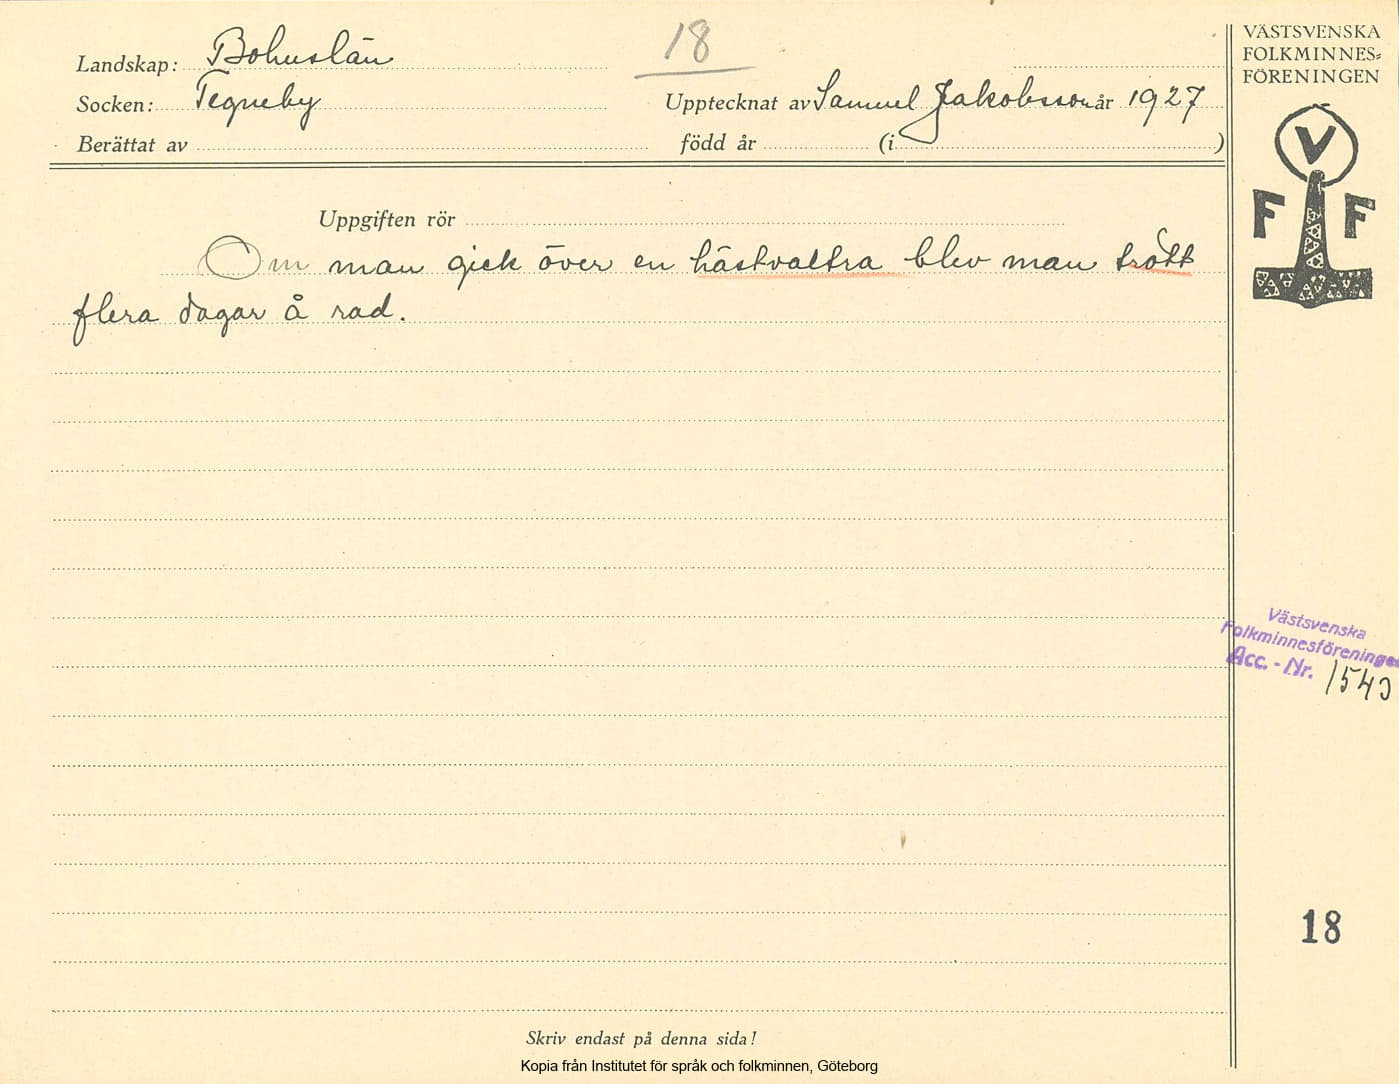 18
Landskap: Bohuslän
Socken: Tegneby
Upptecknat av Samuel Jakobsson år 1927
Berättat av född år (i )
Uppgiften rör
Om man gick över en hästvaltra blev man trött
flera dagar å rad.
VÄSTSVENSKA
FOLKMINNES=
FÖRENINGEN
V
F F
Västsvenska
Folkminnesföreningen
Acc. - Nr. 1540
18
Skriv endast på denna sida!
Kopia från Institutet för språk och folkminnen, Göteborg